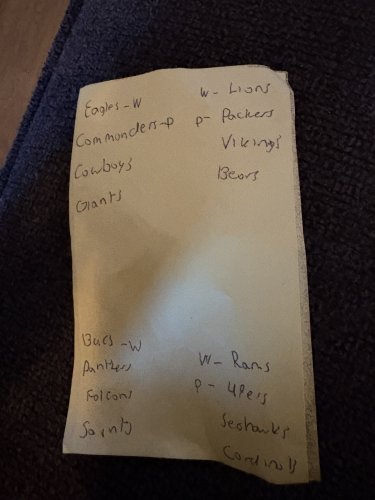 Eagles - W
Commanders - P
Cowboys
Giants
W - Lions
P - Packers
Vikings
Bears
Bucs - W
Panthers
Falcons
Saints
W - Rams
P - 49ers
Seahawks
Cardinals